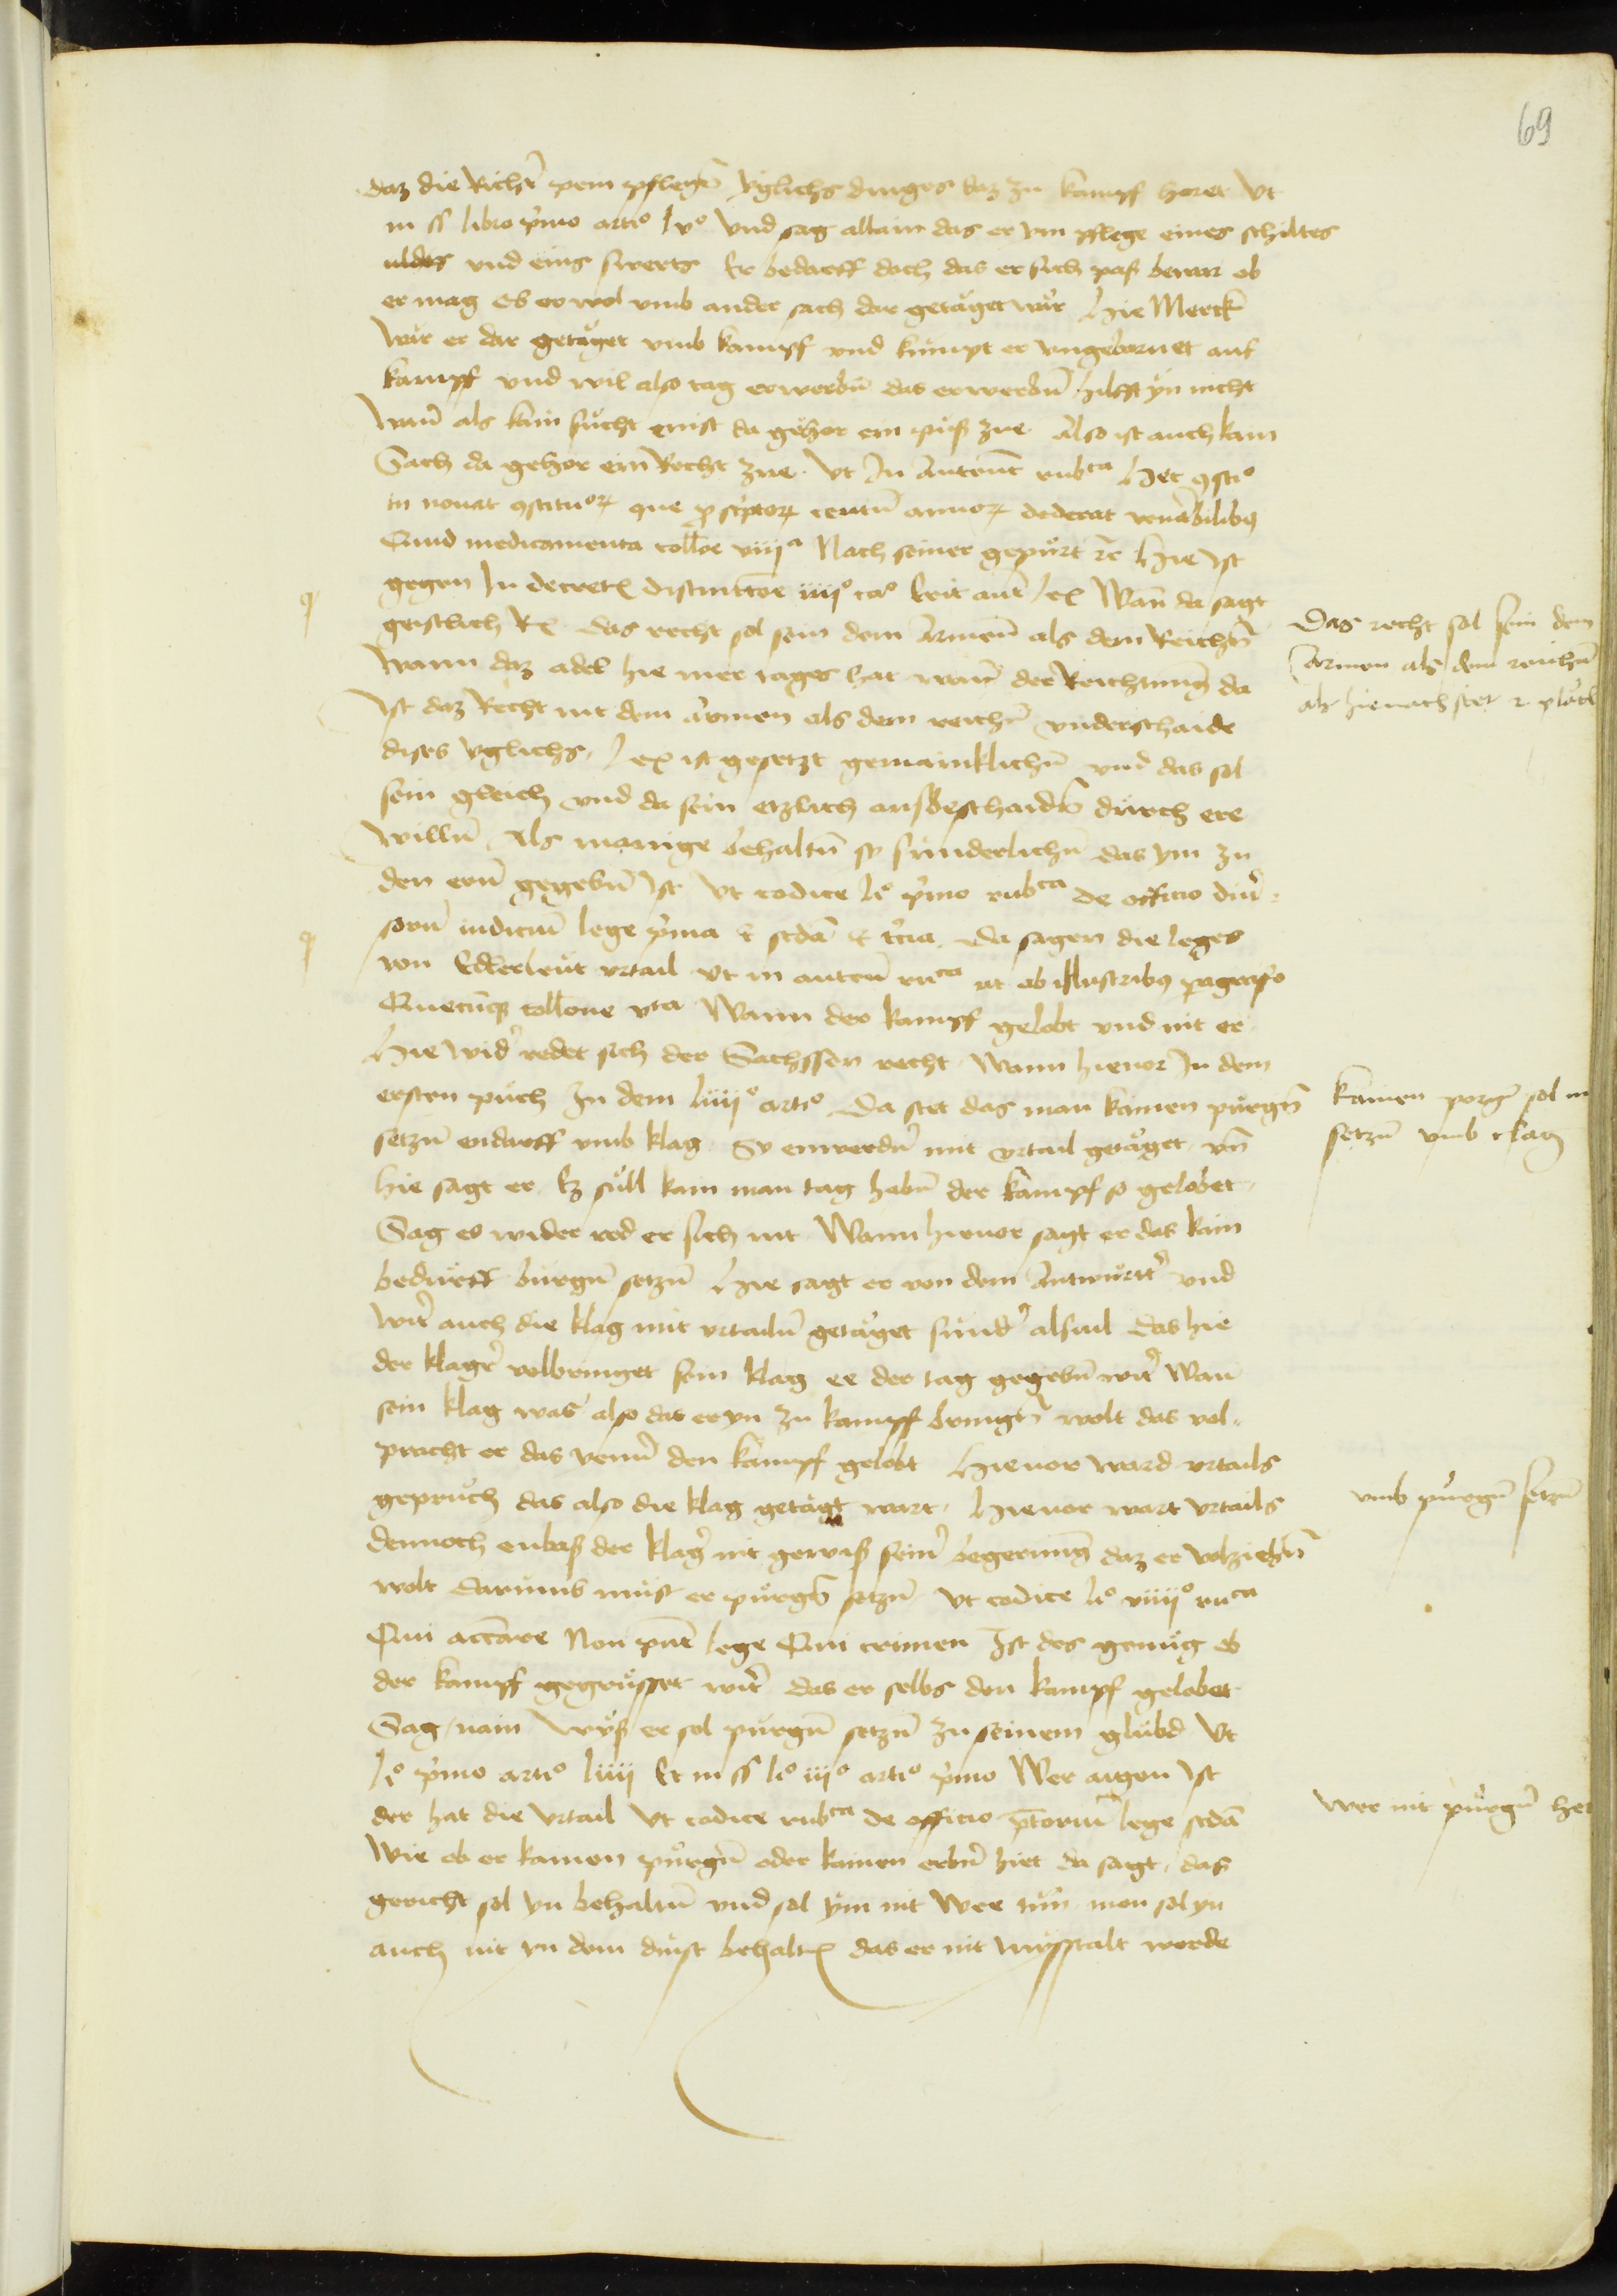 69
daz die Richt̄ pem pflegn̄ yglichs dinges daz zu kampf horet Vt
in ss libro p̄mo artio lvo Vnd sag allain das er ym pflege eines schiltes
und eins swerts Er bedarff doch das er sich paß bewar ob
er mag Ob er wol vmb ander sach dar getäget wär Hie Merck
Wär er dar getäget vmb kampff und kumpt er vngebarnet auf
kampff und wil also tag erwerbn̄ das erwerbn̄ hilfft yn nicht
Wan̄ als kain sücht enist da gehor ein puß zue Also ist auch kain
Sach da gehor ein Recht zue. Vt In Autent̄ rubca Hec
in nouat que centū annoꝝ dederat venerabilibꝰ
Quid medicamenta viiia Nach seiner gepürt rc Hie Ist
gegen In decretꝭ distinctōe iiiio cao Erit aut̄ lex Wan̄ da sagt
geistlich Rꝭ das recht sol sein dem Armen̄ als dem Reichn̄
Wann daz adel hie mer tages hat wan̄ der Reichtung da
Ist daz Recht nit dem armen als dem reichn̄ vnderschaide
dises yglichs. lex ist gesetzt gemainklichn̄ und das sol
sein gleich und da sein etzlich ausbeschaidn̄ durch ere
willn̄ Als manige behaltn̄ sy sunderlichn̄ das ym zu
den ern̄ gegebn̄ Ist Vt codice lo p̄mo rubca de officio diū
sorū iudicū lege p̄ma ⁊ scdā ⁊ t̄cia. Da sagen die leges
von Edlerleut vrtail vt in autent̄ ruca ut ab Illustribꝰ
Quecūqꝫ vta Wann der kampff gelobt und nit er
Hie wid̄ redet sich der Sachssen recht. Wann hieuor In dem
ersten puch In dem liiiio artio Da stet das man kainen pürgn̄
setzn̄ endarff vmb klag. Sy enwerdn̄ mit vrtail getäget. vn̄
hie sagt er. Ez süll kain man tag hebn̄ der kampf so gelobet.
Sag es wider red er sich nit. Wann hieuor sagt er das kain
bedürff bürgn̄ setzn̄ Hie sagt er von dem Antwurtt̄ und
wirt auch die klag mit vrtailn̄ getäget sund̄ alsuil das hie
der klager̄ volbringet sein klag ee der tag gegebn̄ wirt Wan̄
sein klag was also das er yn zu kampff bringn̄ wolt das vol-
pracht er das yener̄ den kampf gelobt Hieuor ward vrtails
gepruch das also die klag getagt wart. Hieuor wart vrtails
dennoch enbas der klager̄ nit gewis seinr̄ begerung daz er volziehn̄
wolt Darumb must er pürgn̄ setzn̄ Vt codice lo viiiio ruca
Qui accūare Non pn̄t lege Qui crimen Ist des genug ob
der kampf gegrusset wirt das er selbs den kampf gelobet
Sag nain Wyß er sol pürgn̄ setzn̄ zu seinem glübd Vt
lo p̄mo artio liiii Et in ss lo iiio artio p̄mo Wer aigen Ist
der hat die Vrtail Vt codice rubca de officio p̄toriū lege scdā
Wie ob er kainen pürgn̄ oder kainen erbn̄ hiet da sagt. das
gericht sol yn behaltn̄ und sol ym nit Wee tūn. man sol yn
auch nit yn dem dinst behaltn̄ das er nit mysstalt werde
Das recht sol sein dem
Armen als dem reichn̄
als hienach stet
kainen porgn̄ sol
setzn̄ vmb klag
vmb pürgn̄ setzn̄
Wer nit pürgn̄ het